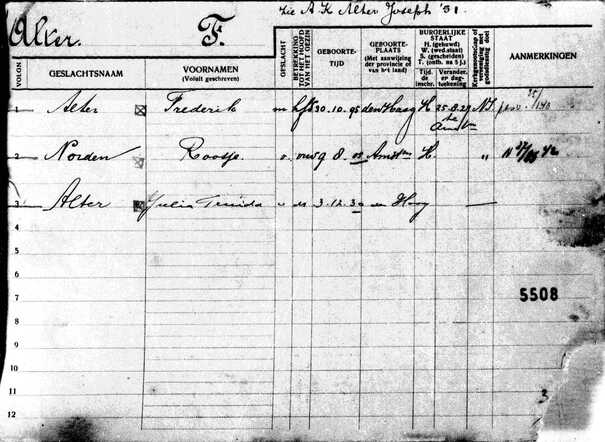 zie A K Alter Joseph '31.
Alter. F.
VOLGN. GESLACHTSNAAM VOORNAMEN (Voluit geschreven) GESLACHT BETREKKING TOT HET HOOFD VAN HET GEZIN GEBOORTE-TIJD GEBOORTE-PLAATS (Met aanwijzing der provincie of van h t land) BURGERLIJKE STAAT H. (gehuwd) W. (wed.staat) S. (gescheiden) T. (ontb. na 5 j.) Tijd. de inschr. Verander. er dag-teekening AANMERKINGEN
1 Alter Frederik m hfd 30.10.95 den Haag H 25.8.27 Amst. N.I. pens. 35/140
2 Norden Roosje v. vrw 9 8. Amst. H. "
3 Alter Julia v d 3.12.30 den Haag —
4
5
6
7 5508
8
9
10
11 3
12